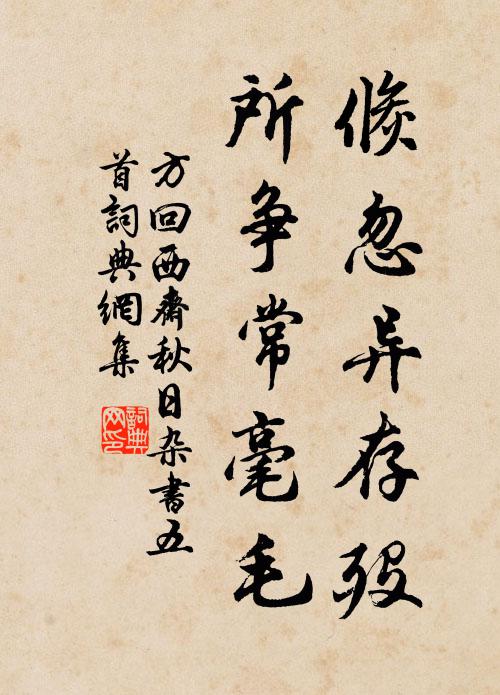 倐忽异存殁
所争常毫毛
方回西齋秋日杂書五
首詞典網集
詞典网印